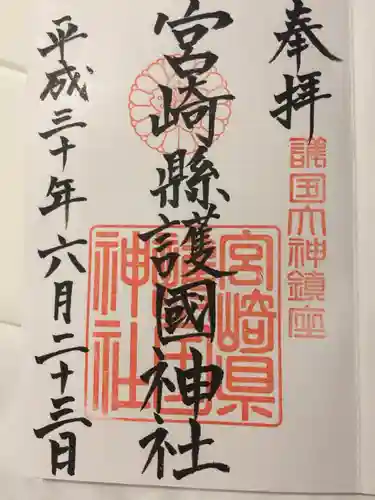 奉拝
護国大神鎮座
宮崎縣護國神社
宮崎県護国神社
平成三十年六月二十三日